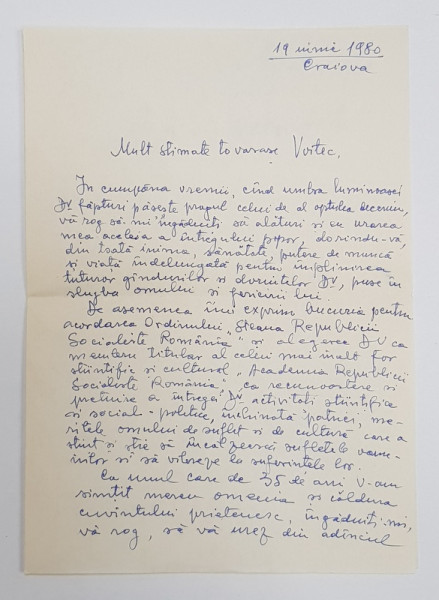 19 iunie 1980
Craiova
Mult stimate tovarașe Voitec,
În cumpăna vremii, cînd umbra luminoasei
Dv făpturi pășește pragul celui de al optulea deceniu,
vă rog să-mi îngăduiți să alătur și eu urarea
mea aceluia a întregului popor, dorindu-vă,
din toată inima, sănătate, putere de muncă
și viață îndelungată pentru împlinirea
tuturor gîndurilor și dorințelor Dv, puse în
slujba omului și fericirii lui.
De asemenea îmi exprim bucuria pentru
acordarea Ordinului „Steaua Republicii
Socialiste România" și alegerea Dv ca
membru titular al celui mai înalt for
științific și cultural „Academia Republicii
Socialiste România", ca recunoaștere și
prețuire a întregii Dv activități științifice
și social-politice, închinată patriei, me-
ritele omului de suflet și de cultură care a
știut și știe să încălzească sufletele oame-
nilor și să vibreze la suferințele lor.
Ca unul care de 35 de ani v-am
simțit mereu omenia și căldura
cuvîntului prietenesc, îngăduiți-mi,
vă rog, să vă urez din adîncul